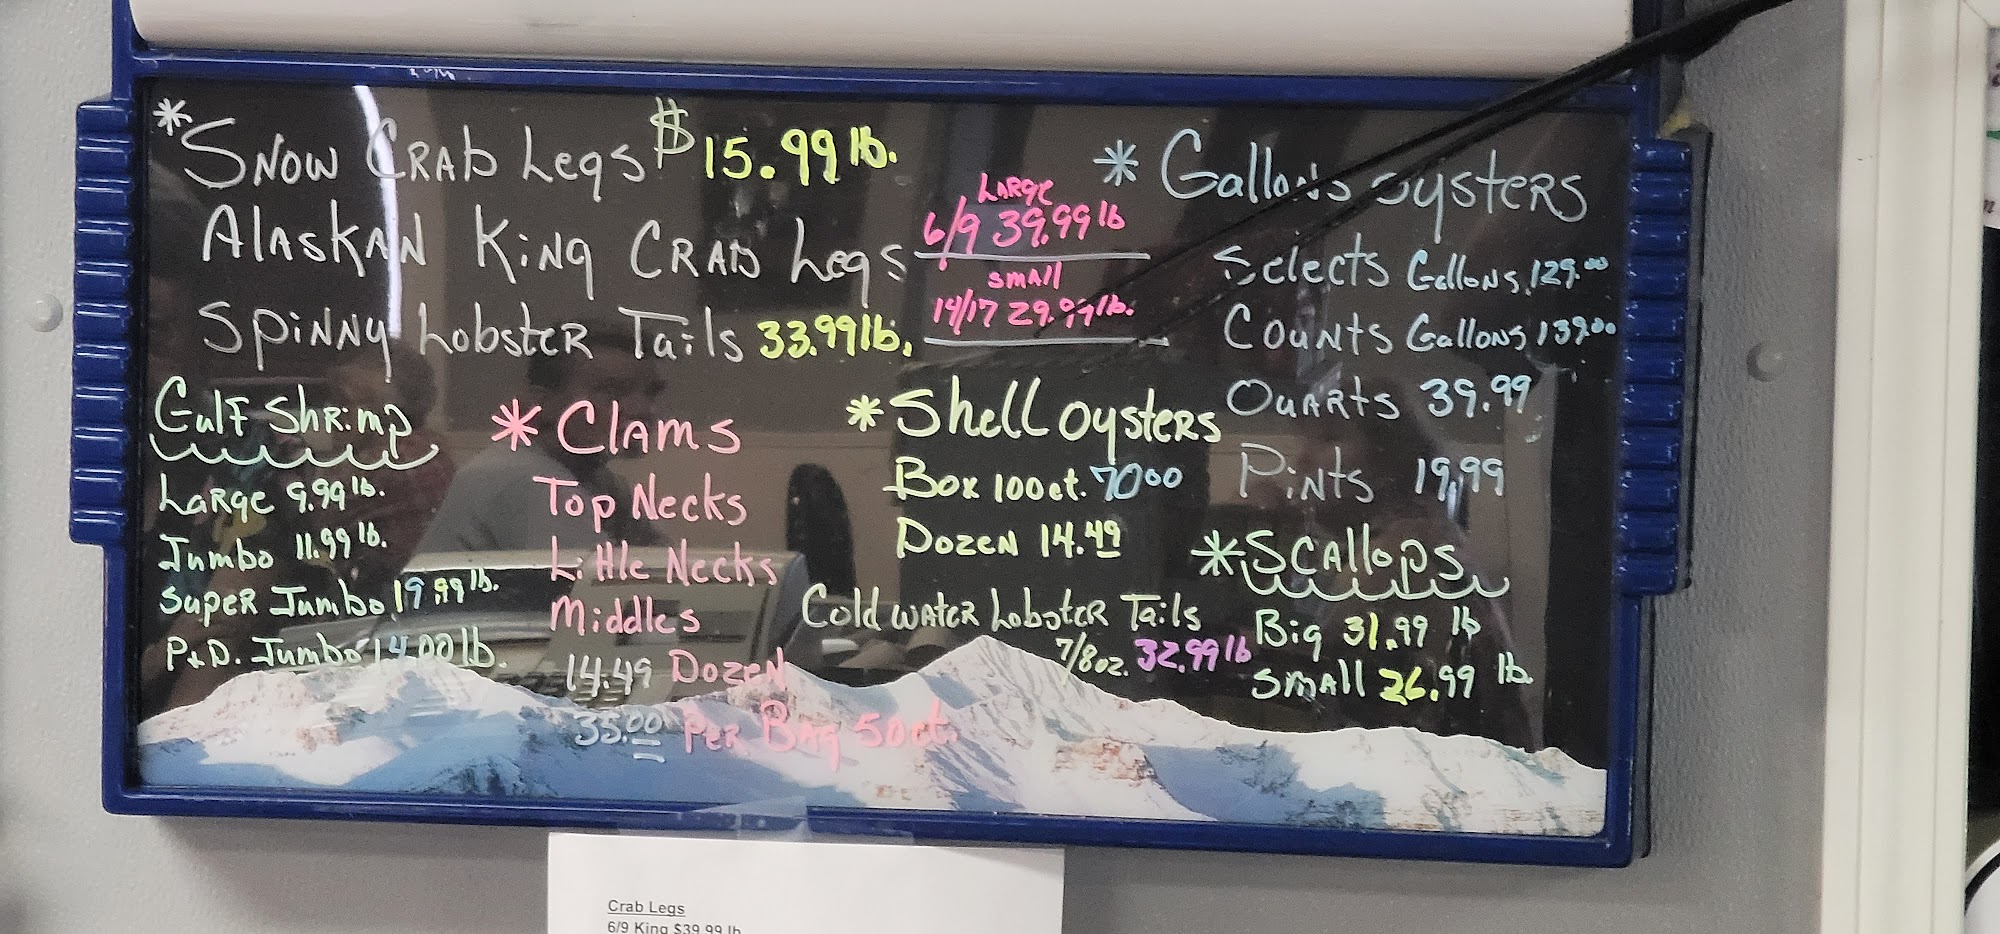 * SNOW CRAb Legs $15.99 lb.
ALASKAN King CRAb Legs
LARge
6/9 39.99 lb
SMAll
14/17 29.99 lb.
SpiNNy LobsteR Tails 33.99 lb.
Gulf ShRimp
LaRge 9.99 lb.
Jumbo 11.99 lb.
SupeR Jumbo 19.99 lb.
P+D. Jumbo 14.00 lb.
* Clams
Top Necks
Little Necks
Middles
14.49 Dozen
35.00 PeR Bag 50ct.
* Shell oysteRs
Box 100ct. 7000
Dozen 14.49
Cold wateR LobsteR Tails
7/8oz. 32.99 lb
* Gallons oysteRs
Selects Gallons 129.00
Counts Gallons 139.00
QuARts 39.99
Pints 19,99
* SCAllops
Big 31.99 lb
SMAll 26.99 lb.
Crab Legs
6/9 King $39.99 lb